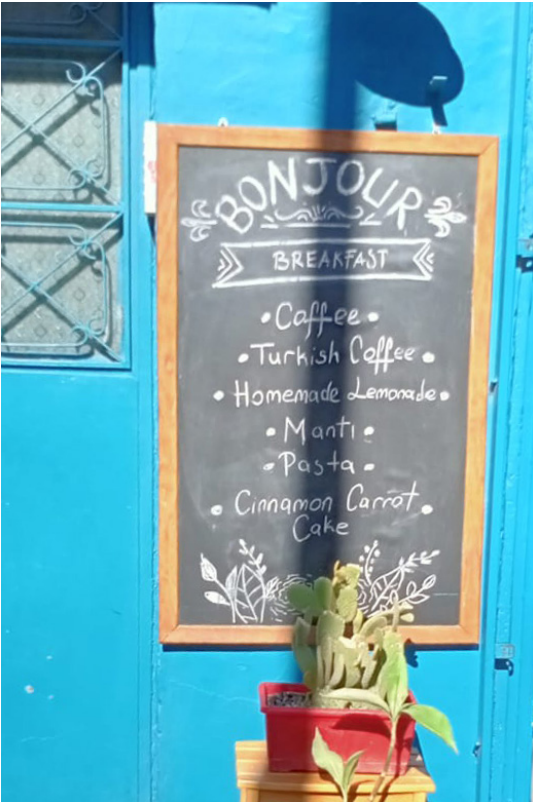 BONJOUR
BREAKFAST
• Caffee •
• Turkish Coffee •
• Homemade Lemonade •
• Mantı •
• Pasta •
• Cinnamon Carrot •
Cake